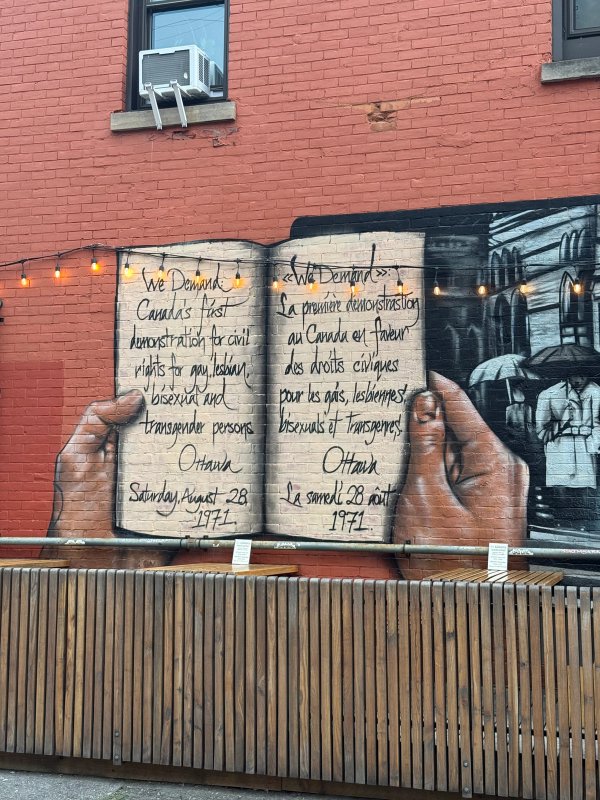 We Demand:
Canada's first
demonstration for civil
rights for gay, lesbian,
bisexual and
transgender persons
Ottawa
Saturday, August 28,
1971.
«We Demand»:
La première démonstration
au Canada en faveur
des droits civiques
pour les gais, lesbiennes,
bisexuals et transgenres,
Ottawa
La samedi 28 août
1971.